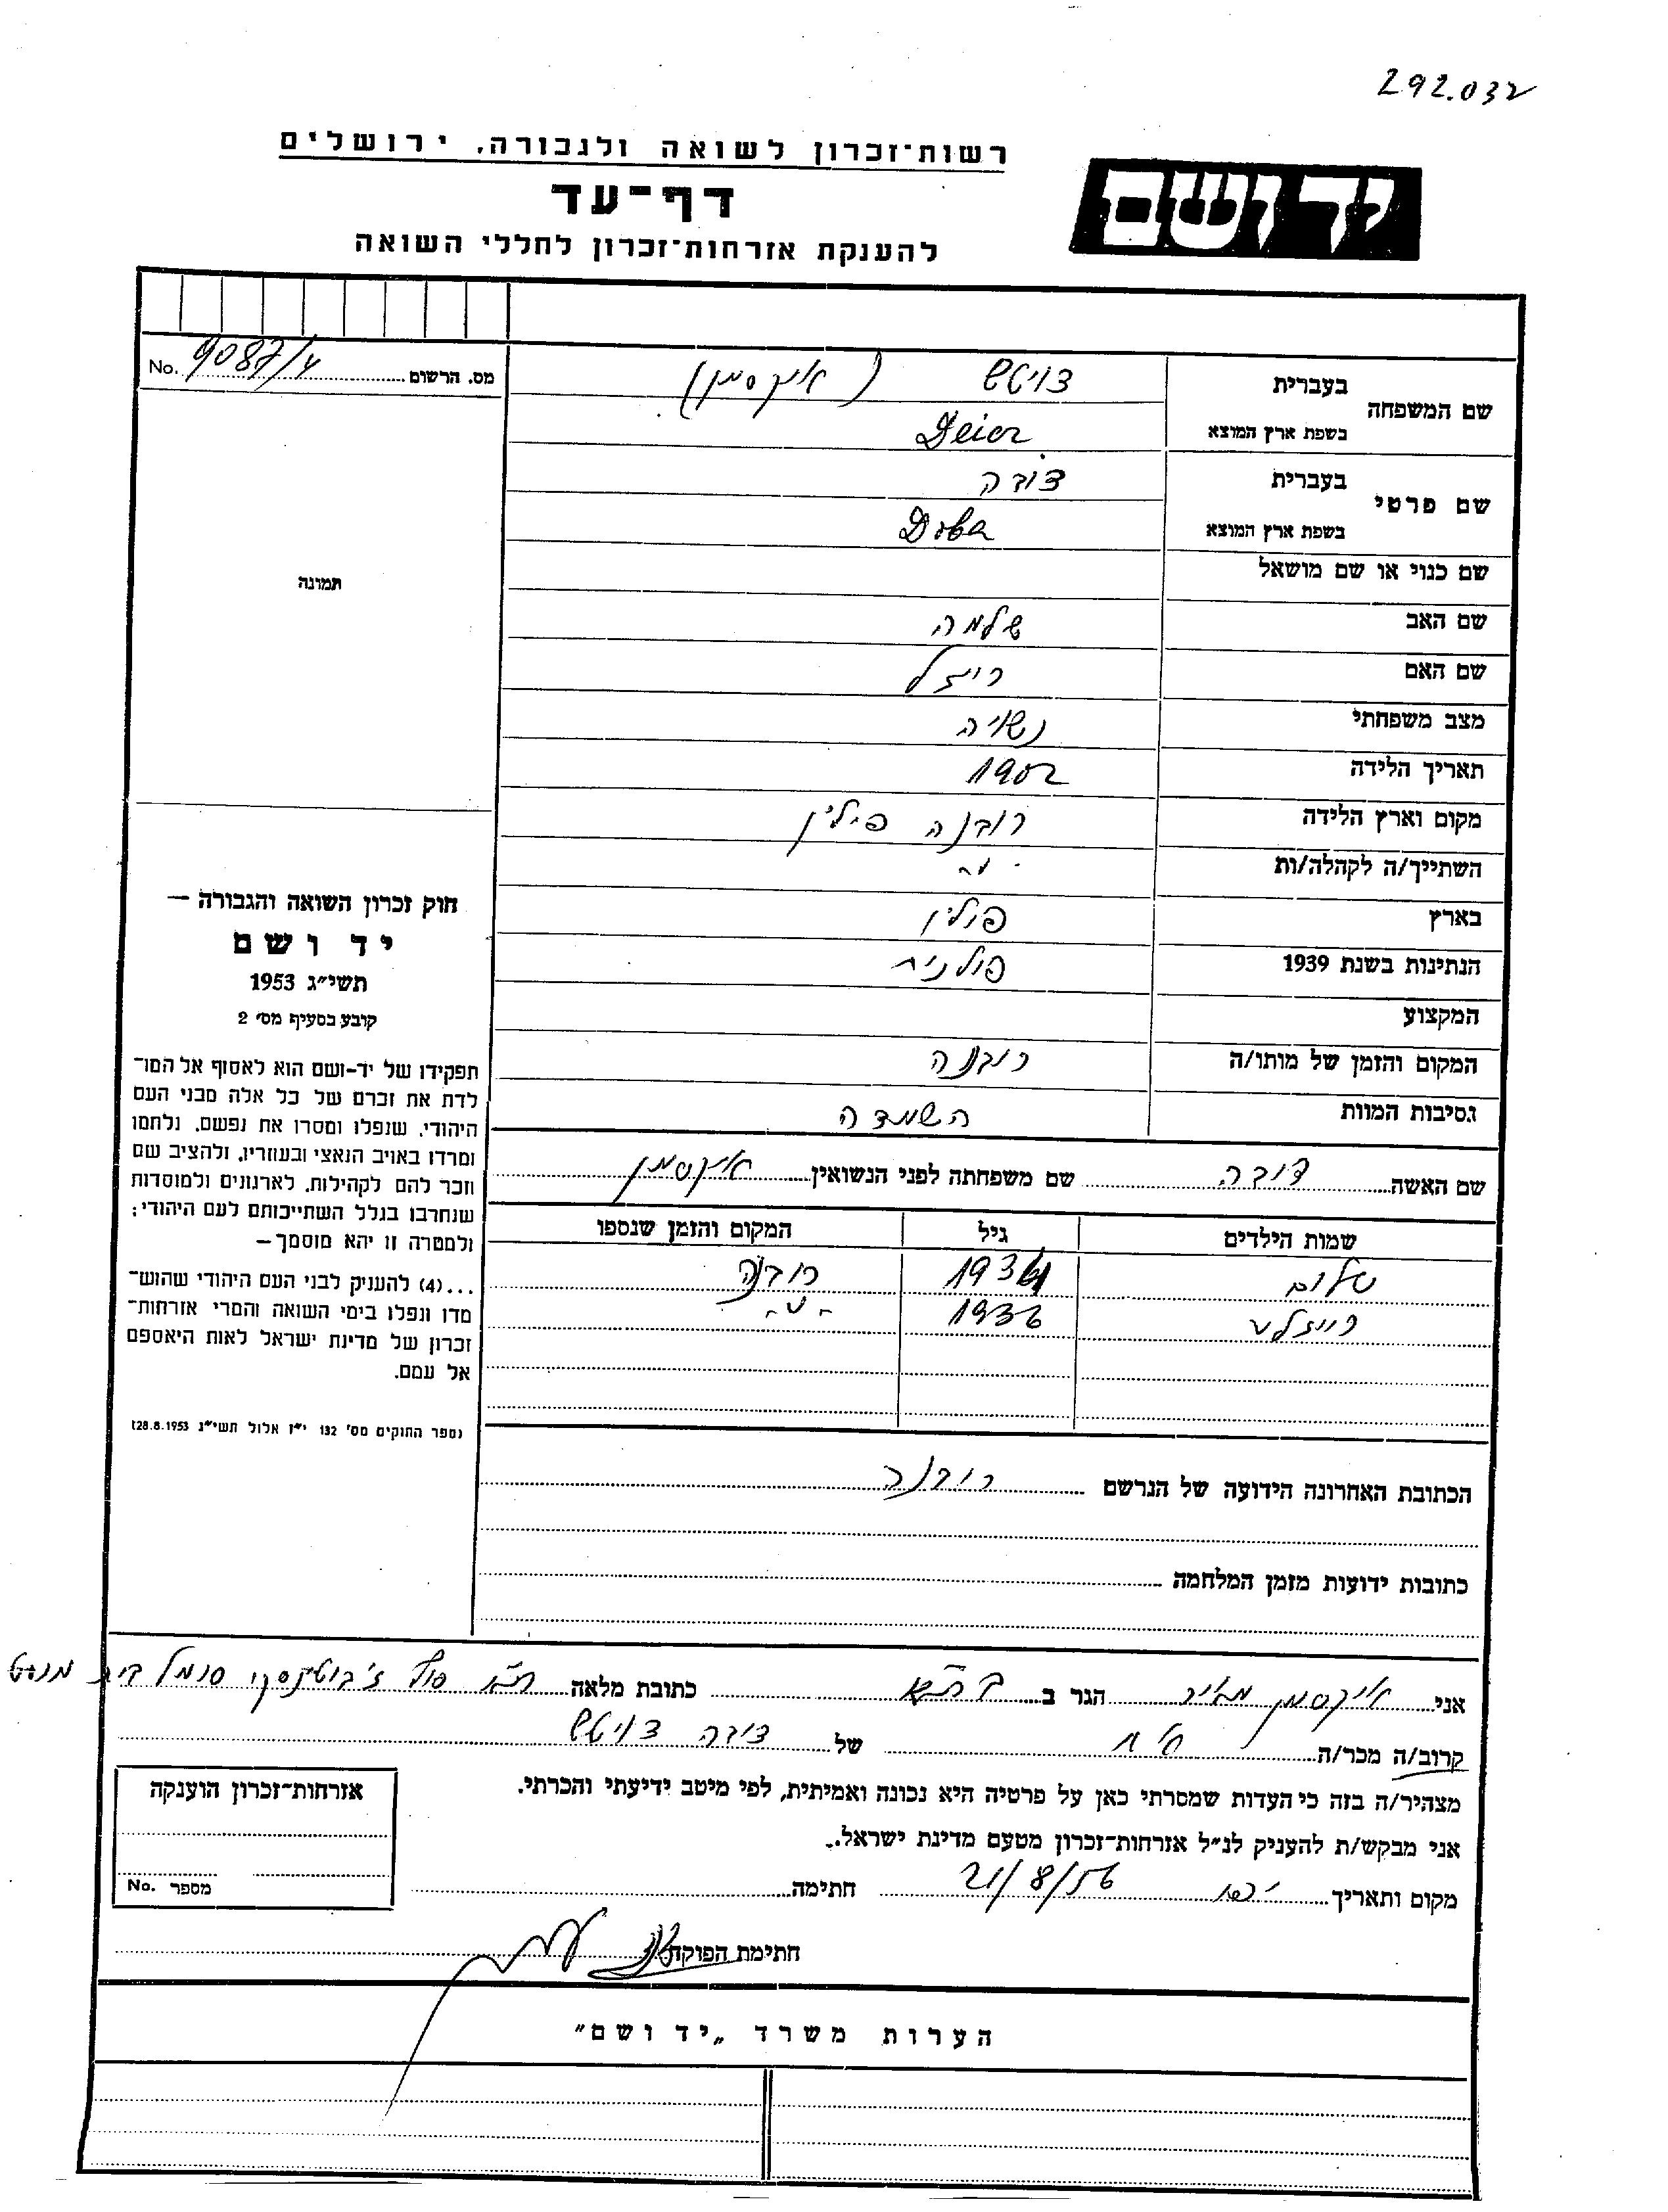 292.032
רשות־זכרון לשואה ולגבורה, ירושלים
יד ושם
דף־עד
להענקת אזרחות־זכרון לחללי השואה
מס. הרשום 9087/4 No.
שם המשפחה בעברית דויטש (אייקסמן)
בשפת ארץ המוצא
שם פרטי בעברית דובה
בשפת ארץ המוצא Doba
שם כנוי או שם מושאל
שם האב שלמה
שם האם רייזל
מצב משפחתי נשויה
תאריך הלידה 1902
מקום וארץ הלידה רובנה פולין
השתייך/ה לקהלה/ות
בארץ פולין
הנתינות בשנת 1939 פולנית
המקצוע
המקום והזמן של מותו/ה רובנה
נסיבות המוות השמדה
תמונה
חוק זכרון השואה והגבורה —
יד ושם
תשי״ג 1953
קובע בסעיף מס׳ 2
תפקידו של יד-ושם הוא לאסוף אל המו־
לדת את זכרם של כל אלה מבני העם
היהודי, שנפלו ומסרו את נפשם, נלחמו
ומרדו באויב הנאצי ובעוזריו, ולהציב שם
וזכר להם לקהילות, לארגונים ולמוסדות
שנחרבו בגלל השתייכותם לעם היהודי;
ולמטרה זו יהא מוסמך —
...(4) להעניק לבני העם היהודי שהוש־
מדו ונפלו בימי השואה והמרי אזרחות־
זכרון של מדינת ישראל לאות היאספם
אל עמם.
(ספר החוקים מס׳ 132 י״ז אלול תשי״ג 28.8.1953)
שם האשה דובה שם משפחתה לפני הנשואין אייקסמן
שמות הילדים גיל המקום והזמן שנספו
שלום 1934 רובנה
רייזלע 1936 -"-
הכתובת האחרונה הידועה של הנרשם רובנה
כתובות ידועות מזמן המלחמה
אני אייקסמן מאיר הגר ב כתובת מלאה ת״א סוף ז׳בוטינסקי סומל
קרוב/ה מכר/ה אח של דובה דויטש
מצהיר/ה בזה כי העדות שמסרתי כאן על פרטיה היא נכונה ואמיתית, לפי מיטב ידיעתי והכרתי.
אני מבקש/ת להעניק לנ״ל אזרחות־זכרון מטעם מדינת ישראל.
מקום ותאריך יפו 21/8/56 חתימה
חתימת הפוקד
אזרחות־זכרון הוענקה
מספר No.
הערות משרד „יד ושם״